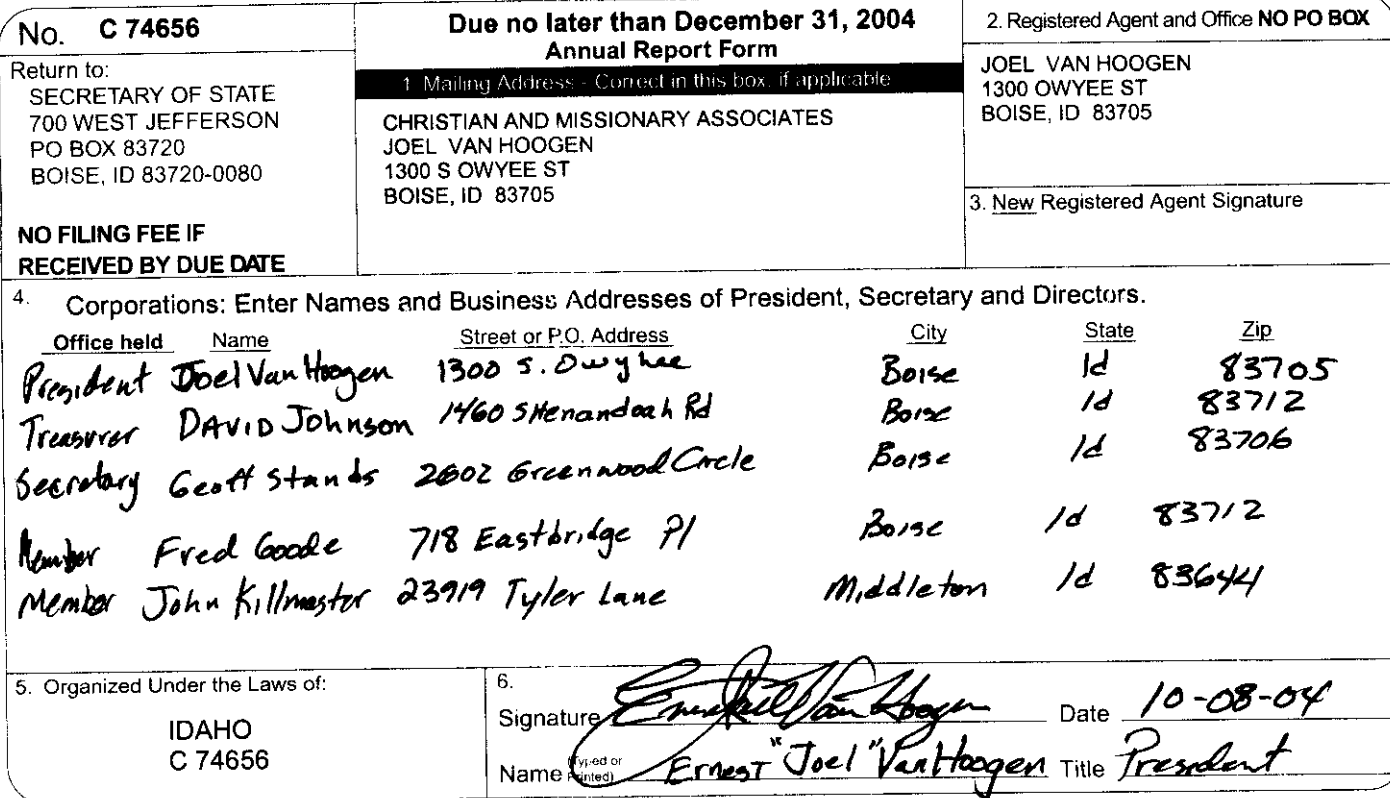 No. C 74656
Return to:
SECRETARY OF STATE
700 WEST JEFFERSON
PO BOX 83720
BOISE, ID 83720-0080
NO FILING FEE IF
RECEIVED BY DUE DATE
Due no later than December 31, 2004
Annual Report Form
1 Mailing Address - Correct in this box, if applicable
CHRISTIAN AND MISSIONARY ASSOCIATES
JOEL VAN HOOGEN
1300 S OWYEE ST
BOISE, ID 83705
2. Registered Agent and Office NO PO BOX
JOEL VAN HOOGEN
1300 OWYEE ST
BOISE, ID 83705
3. New Registered Agent Signature
4. Corporations: Enter Names and Business Addresses of President, Secretary and Directors.
Office held Name Street or P.O. Address City State Zip
President Joel Van Hoogen 1300 S. Owyhee Boise Id 83705
Treasurer DAVID Johnson 1460 SHenandoah Rd Boise Id 83712
Secretary Geoff Stands 2602 Greenwood Circle Boise Id 83706
Member Fred Goode 718 Eastbridge Pl Boise Id 83712
Member John Killmaster 23919 Tyler Lane Middleton Id 83644
5. Organized Under the Laws of:
IDAHO
C 74656
6.
Signature Ernest Joel Van Hoogen Date 10-08-04
Name (Typed or Printed) Ernest "Joel" Van Hoogen Title President